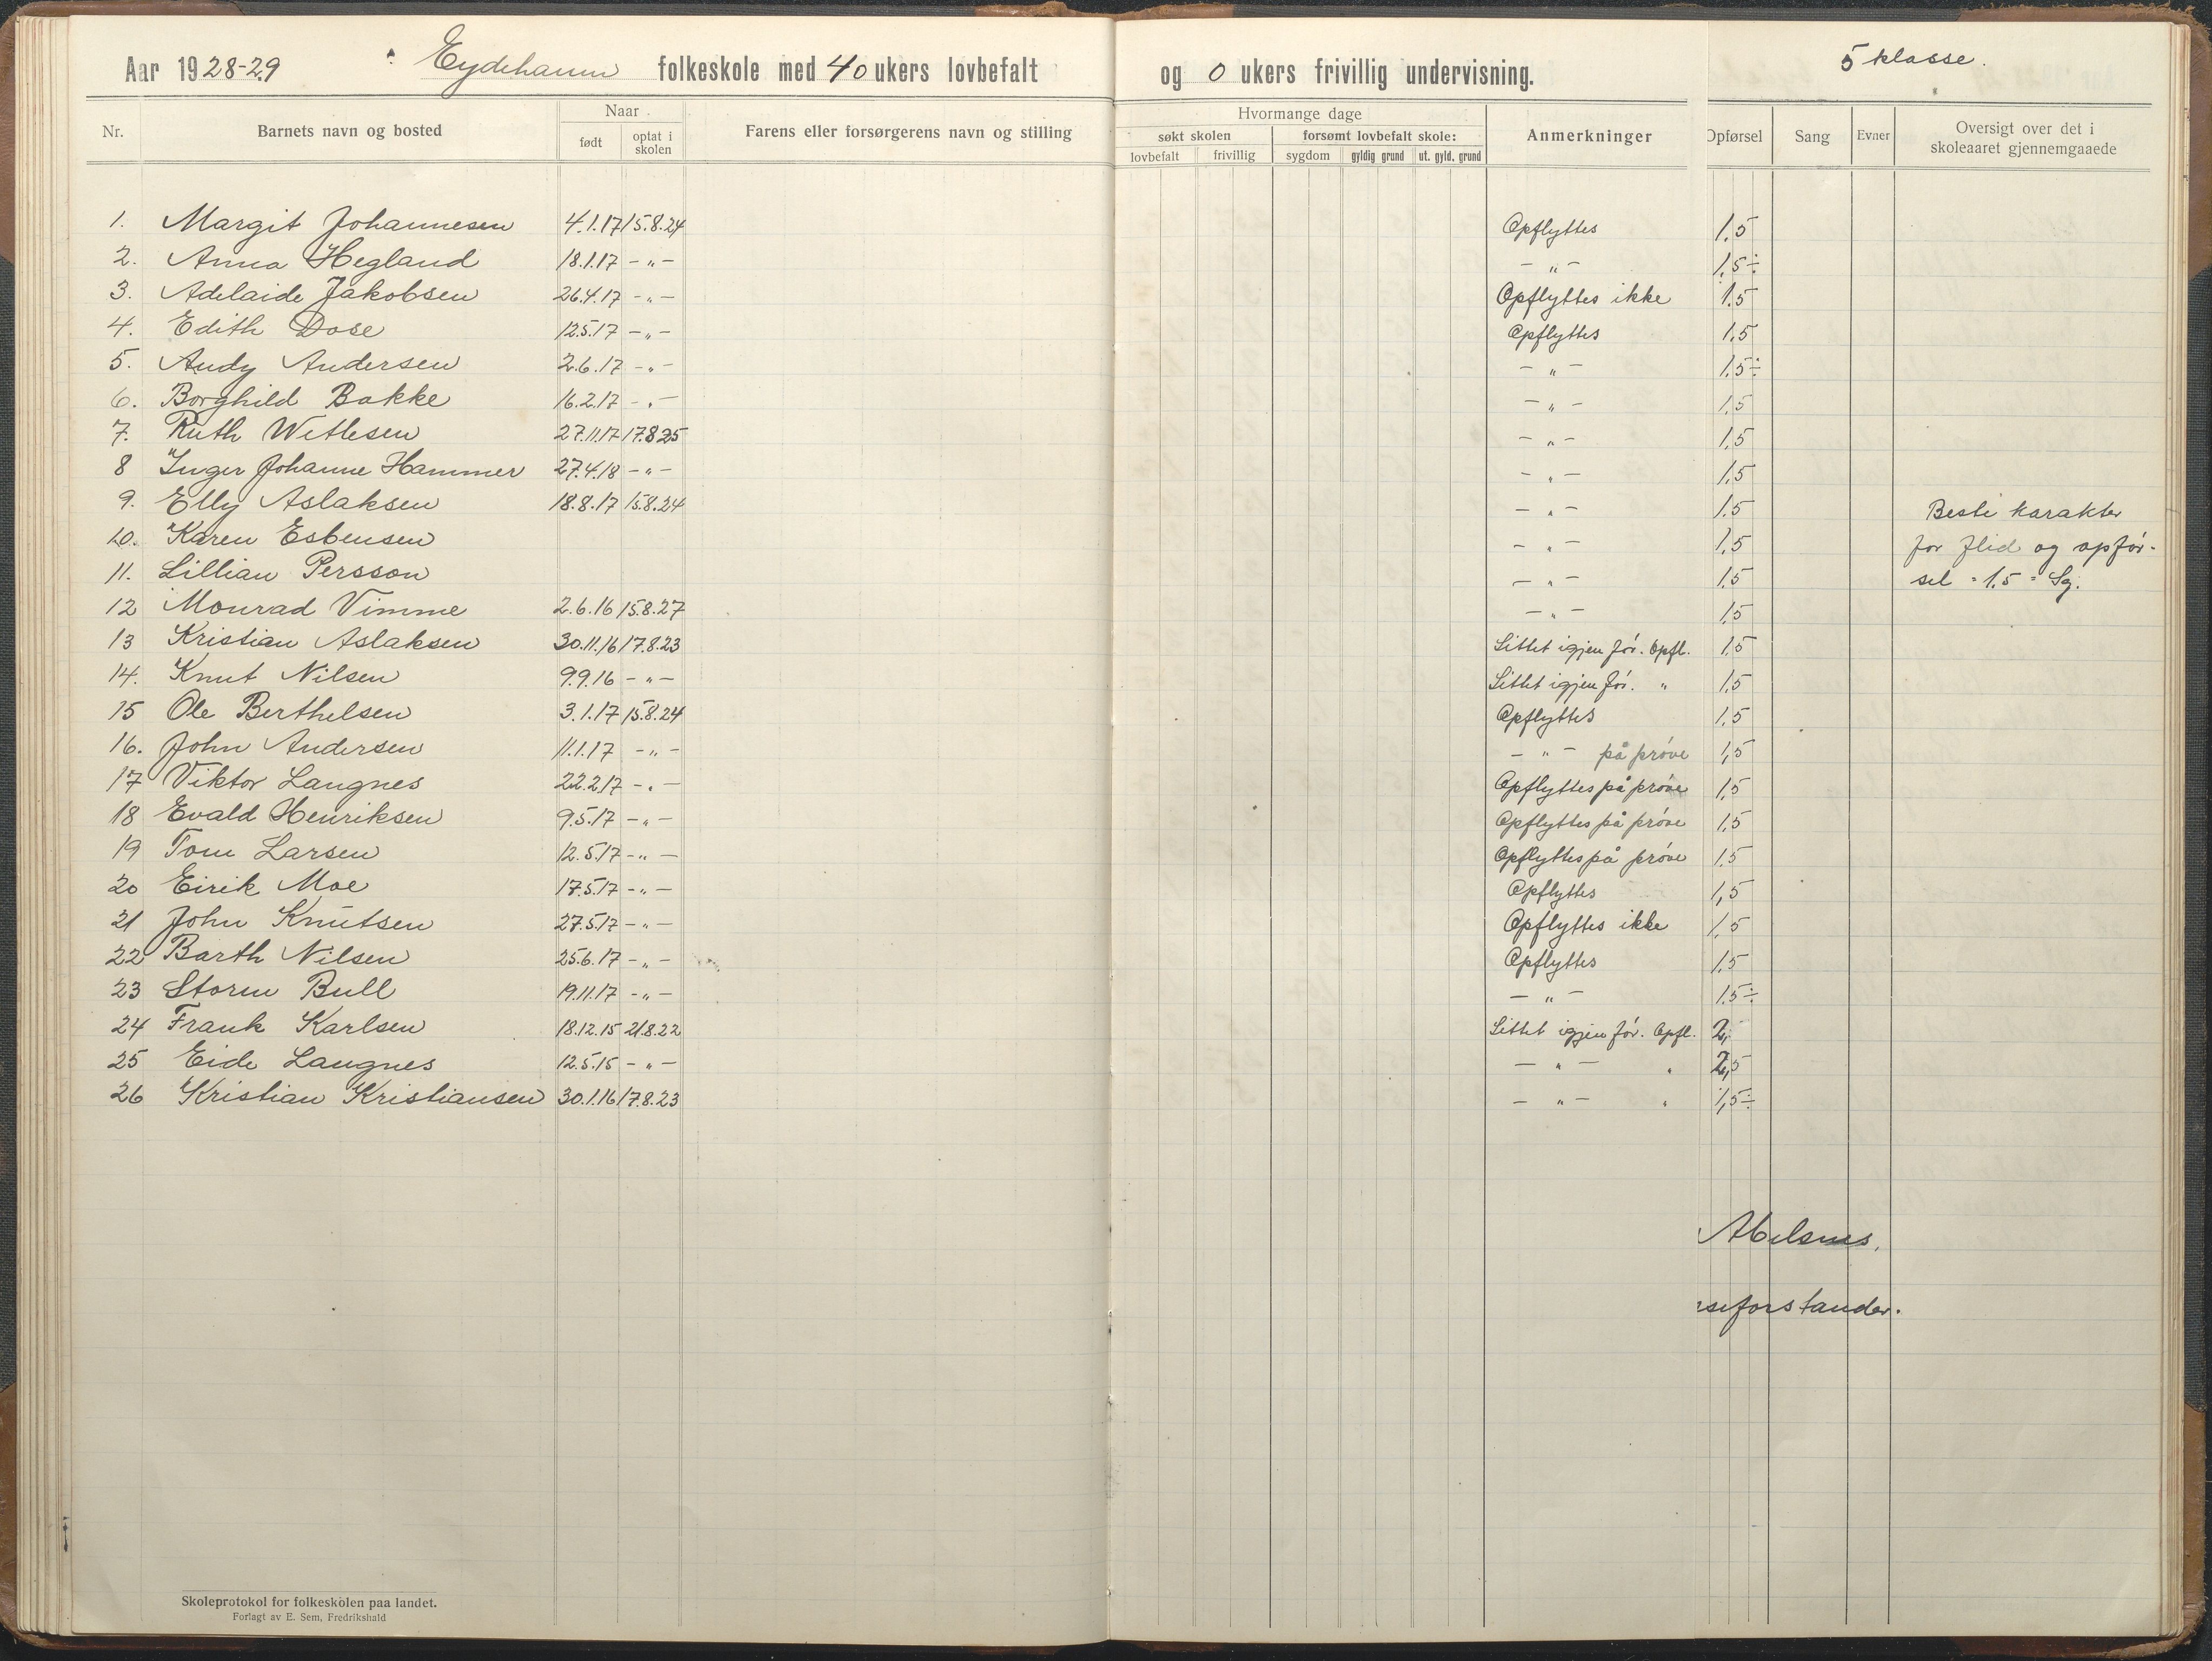 Aar 1928-29 Eydehavn folkeskole med 40 ukers lovbefalt og 0 ukers frivillig undervisning. 5 klasse.
Nr. Barnets navn og bosted Naar født optat i skolen Farens eller forsørgerens navn og stilling Hvormange dage søkt skolen lovbefalt frivillig forsømt lovbefalt skole: sygdom gyldig grund ut. gyld. grund Anmerkninger Opførsel Sang Evner Oversigt over det i skoleaaret gjennemgaaede
1. Margit Johannesen 4.1.17 15.8.24 Opflyttes 1.5
2. Anna Hegland 18.1.17 -"- -"- 1,5÷
3. Adelaide Jakobsen 26.4.17 -"- Opflyttes ikke 1.5
4. Edith Dose 12.5.17 -"- Opflyttes 1,5
5. Andy Andersen 2.6.17 -"- -"- 1.5÷
6. Borghild Bakke 16.2.17 -"- -"- 1,5
7. Ruth Wetlesen 27.11.17 17.8.25 -"- 1,5
8 Inger Johanne Hammer 27.4.18 -"- -"- 1,5
9. Elly Aslaksen 18.8.17 15.8.24 -"- 1.5 Beste karakter
10. Karen Esbensen -"- 1,5 for flid og opfør-
11. Lillian Persson -"- 1.5 sel = 1.5 = Sg.
12 Monrad Vimme 2.6.16 15.8.27 -"- 1,5
13 Kristian Aslaksen 30.11.16 17.8.23 Sittet igjen før. Opfl. 1,5
14. Knut Nilsen 9.9.16 -"- Sittet igjen før. " 1,5
15 Ole Berthelsen 3.1.17 15.8.24 Opflyttes 1.5
16. John Andersen 11.1.17 -"- -"- på prøve 1,5
17 Viktor Langnes 22.2.17 -"- Opflyttes på prøve 1,5
18 Evald Henriksen 9.5.17 -"- Opflyttes på prøve 1,5
19 Tom Larsen 12.5.17 -"- Opflyttes på prøve 1.5
20 Eirik Moe 17.5.17 -"- Opflyttes 1,5
21 John Knutsen 27.5.17 -"- Opflyttes ikke 1,5
22 Barth Nilsen 25.6.17 -"- Opflyttes 1.5
23 Storm Bull 19.11.17 -"- -"- 1.5÷
24 Frank Karlsen 18.12.15 21.8.22 Sittet igjen før. Opfl. 2,
25 Eide Langnes 12.5.15 -"- -"- " 2,5
26 Kristian Kristiansen 30.1.16 17.8.23 -"- " 1,5÷
Abelsnes.
seforstander.
Skoleprotokol for folkeskolen paa landet.
Forlagt av E. Sem, Fredrikshald